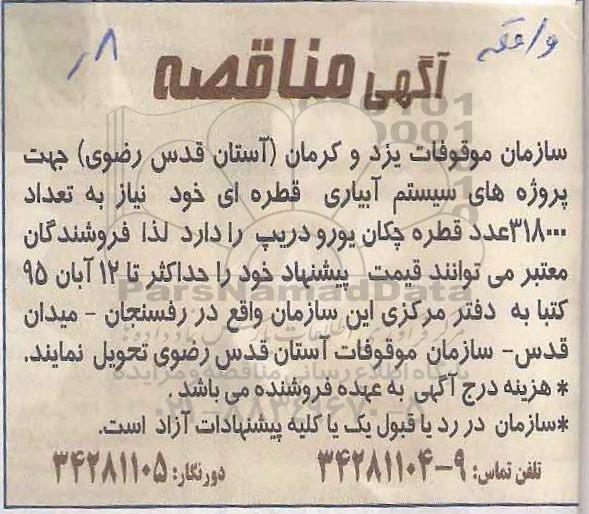 آگهی مناقصه
سازمان موقوفات یزد و کرمان (آستان قدس رضوی) جهت
پروژه های سیستم آبیاری قطره ای خود نیاز به تعداد
۳۱۸۰۰۰عدد قطره چکان یورو دریپ را دارد لذا فروشندگان
معتبر می توانند قیمت پیشنهاد خود را حداکثر تا ۱۲ آبان ۹۵
کتبا به دفتر مرکزی این سازمان واقع در رفسنجان - میدان
قدس- سازمان موقوفات آستان قدس رضوی تحویل نمایند.
* هزینه درج آگهی به عهده فروشنده می باشد.
*سازمان در رد یا قبول یک یا کلیه پیشنهادات آزاد است.
تلفن تماس: ۹-۳۴۲۸۱۱۰۴ دورنگار: ۳۴۲۸۱۱۰۵
ParsNamadData
پایگاه اطلاع رسانی مناقصه و مزایده